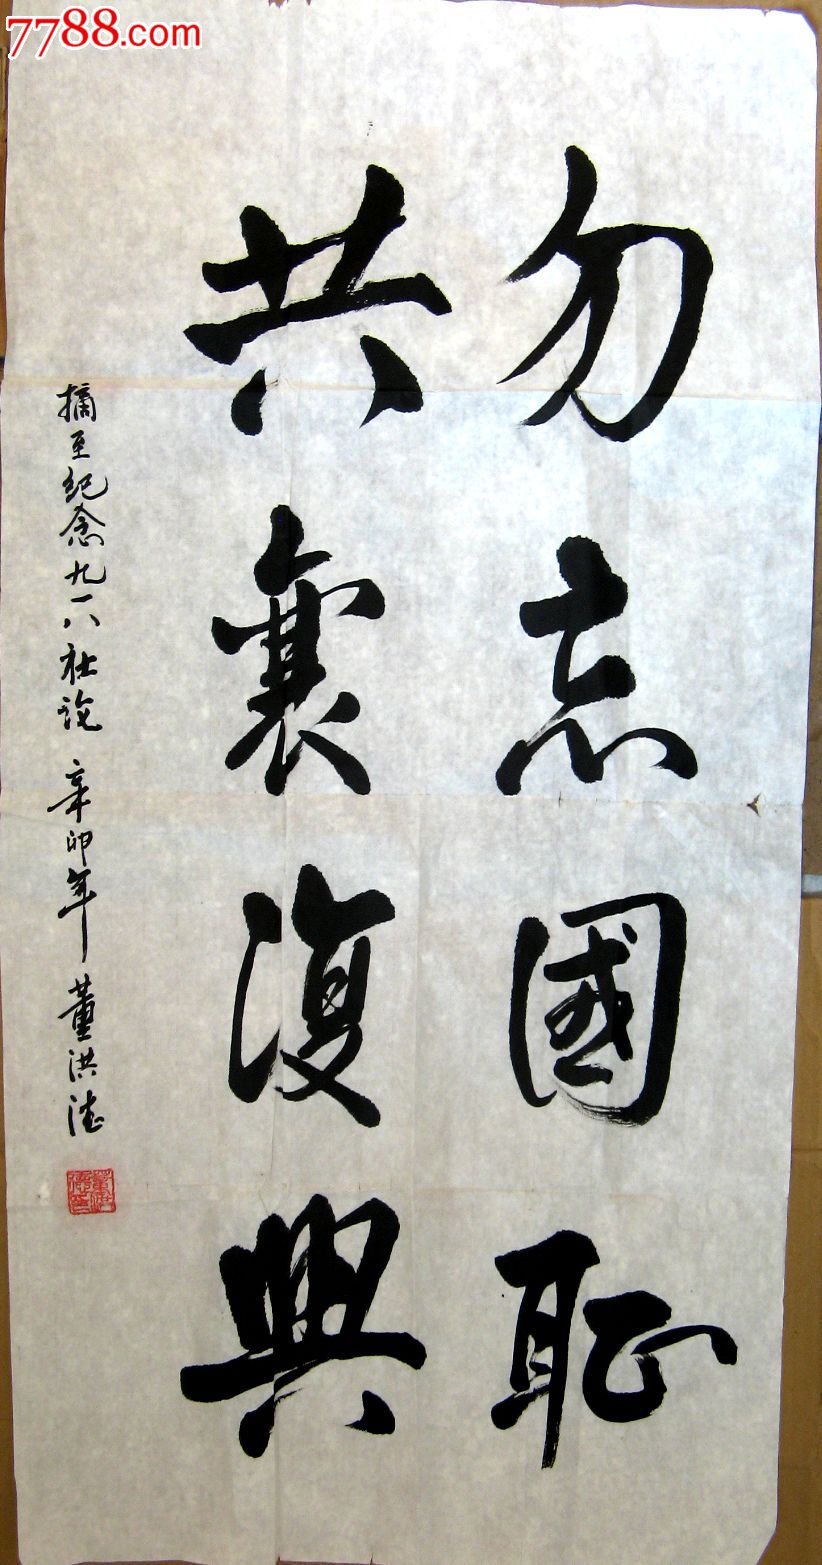 7788.com
勿忘國耻
共襄復興
摘至纪念九一八社论 辛卯年 董洪德